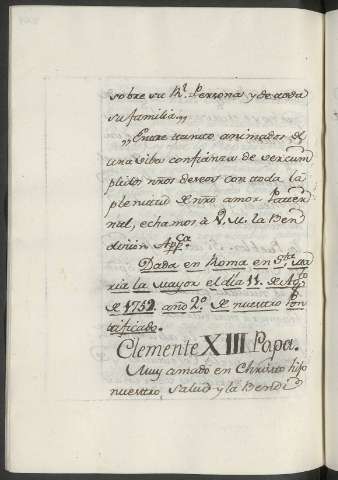 sobre su Rl. Persona, y de toda
su familia,,
,,Entre tanto animados de
una viba confianza de ver cum
plidos ntros deseos con toda la
plenitud de ntro amor Pater
nal, echamos à V. M. la Ben
dicion App.ca
Dada en Roma en Sta. Ma
ria la Mayor el dia 11. de Agto.
de 1752. año 2.º de nuestro Pon
tificado.
Clemente XIII Papa.
Muy amado en Christo hijo
nuestro, Salud y la Bendi